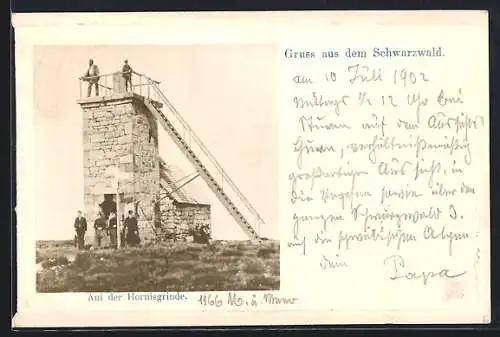 Gruss aus dem Schwarzwald.
am 10 Juli 1902
Mittags ½ 12 Uhr bei
Sturm auf dem Aussichts
thurm, verhältnißmäßig
großartiger Aussicht, in
die Vogesen sowie über den
ganzen Schwarzwald &.
auf die schwäbischen Alpen
dein Papa
Auf der Hornisgrinde. 1166 M. ü. Meer